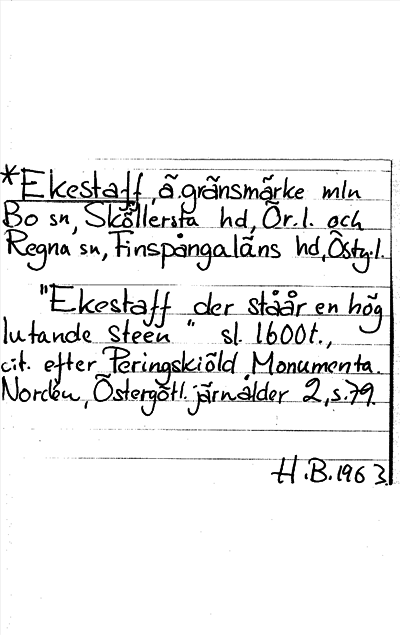 *Ekestaff, ä. gränsmärke mln
Bo sn, Sköllersta hd, Ör. l. och
Regna sn, Finspångaläns hd, Östg. l.
"Ekestaff der ståår en hög
lutande steen" sl. 1600t.,
cit. efter Peringskiöld Monumenta.
Nordén, Östergötl. järnålder 2, s. 79.
H.B. 1963.